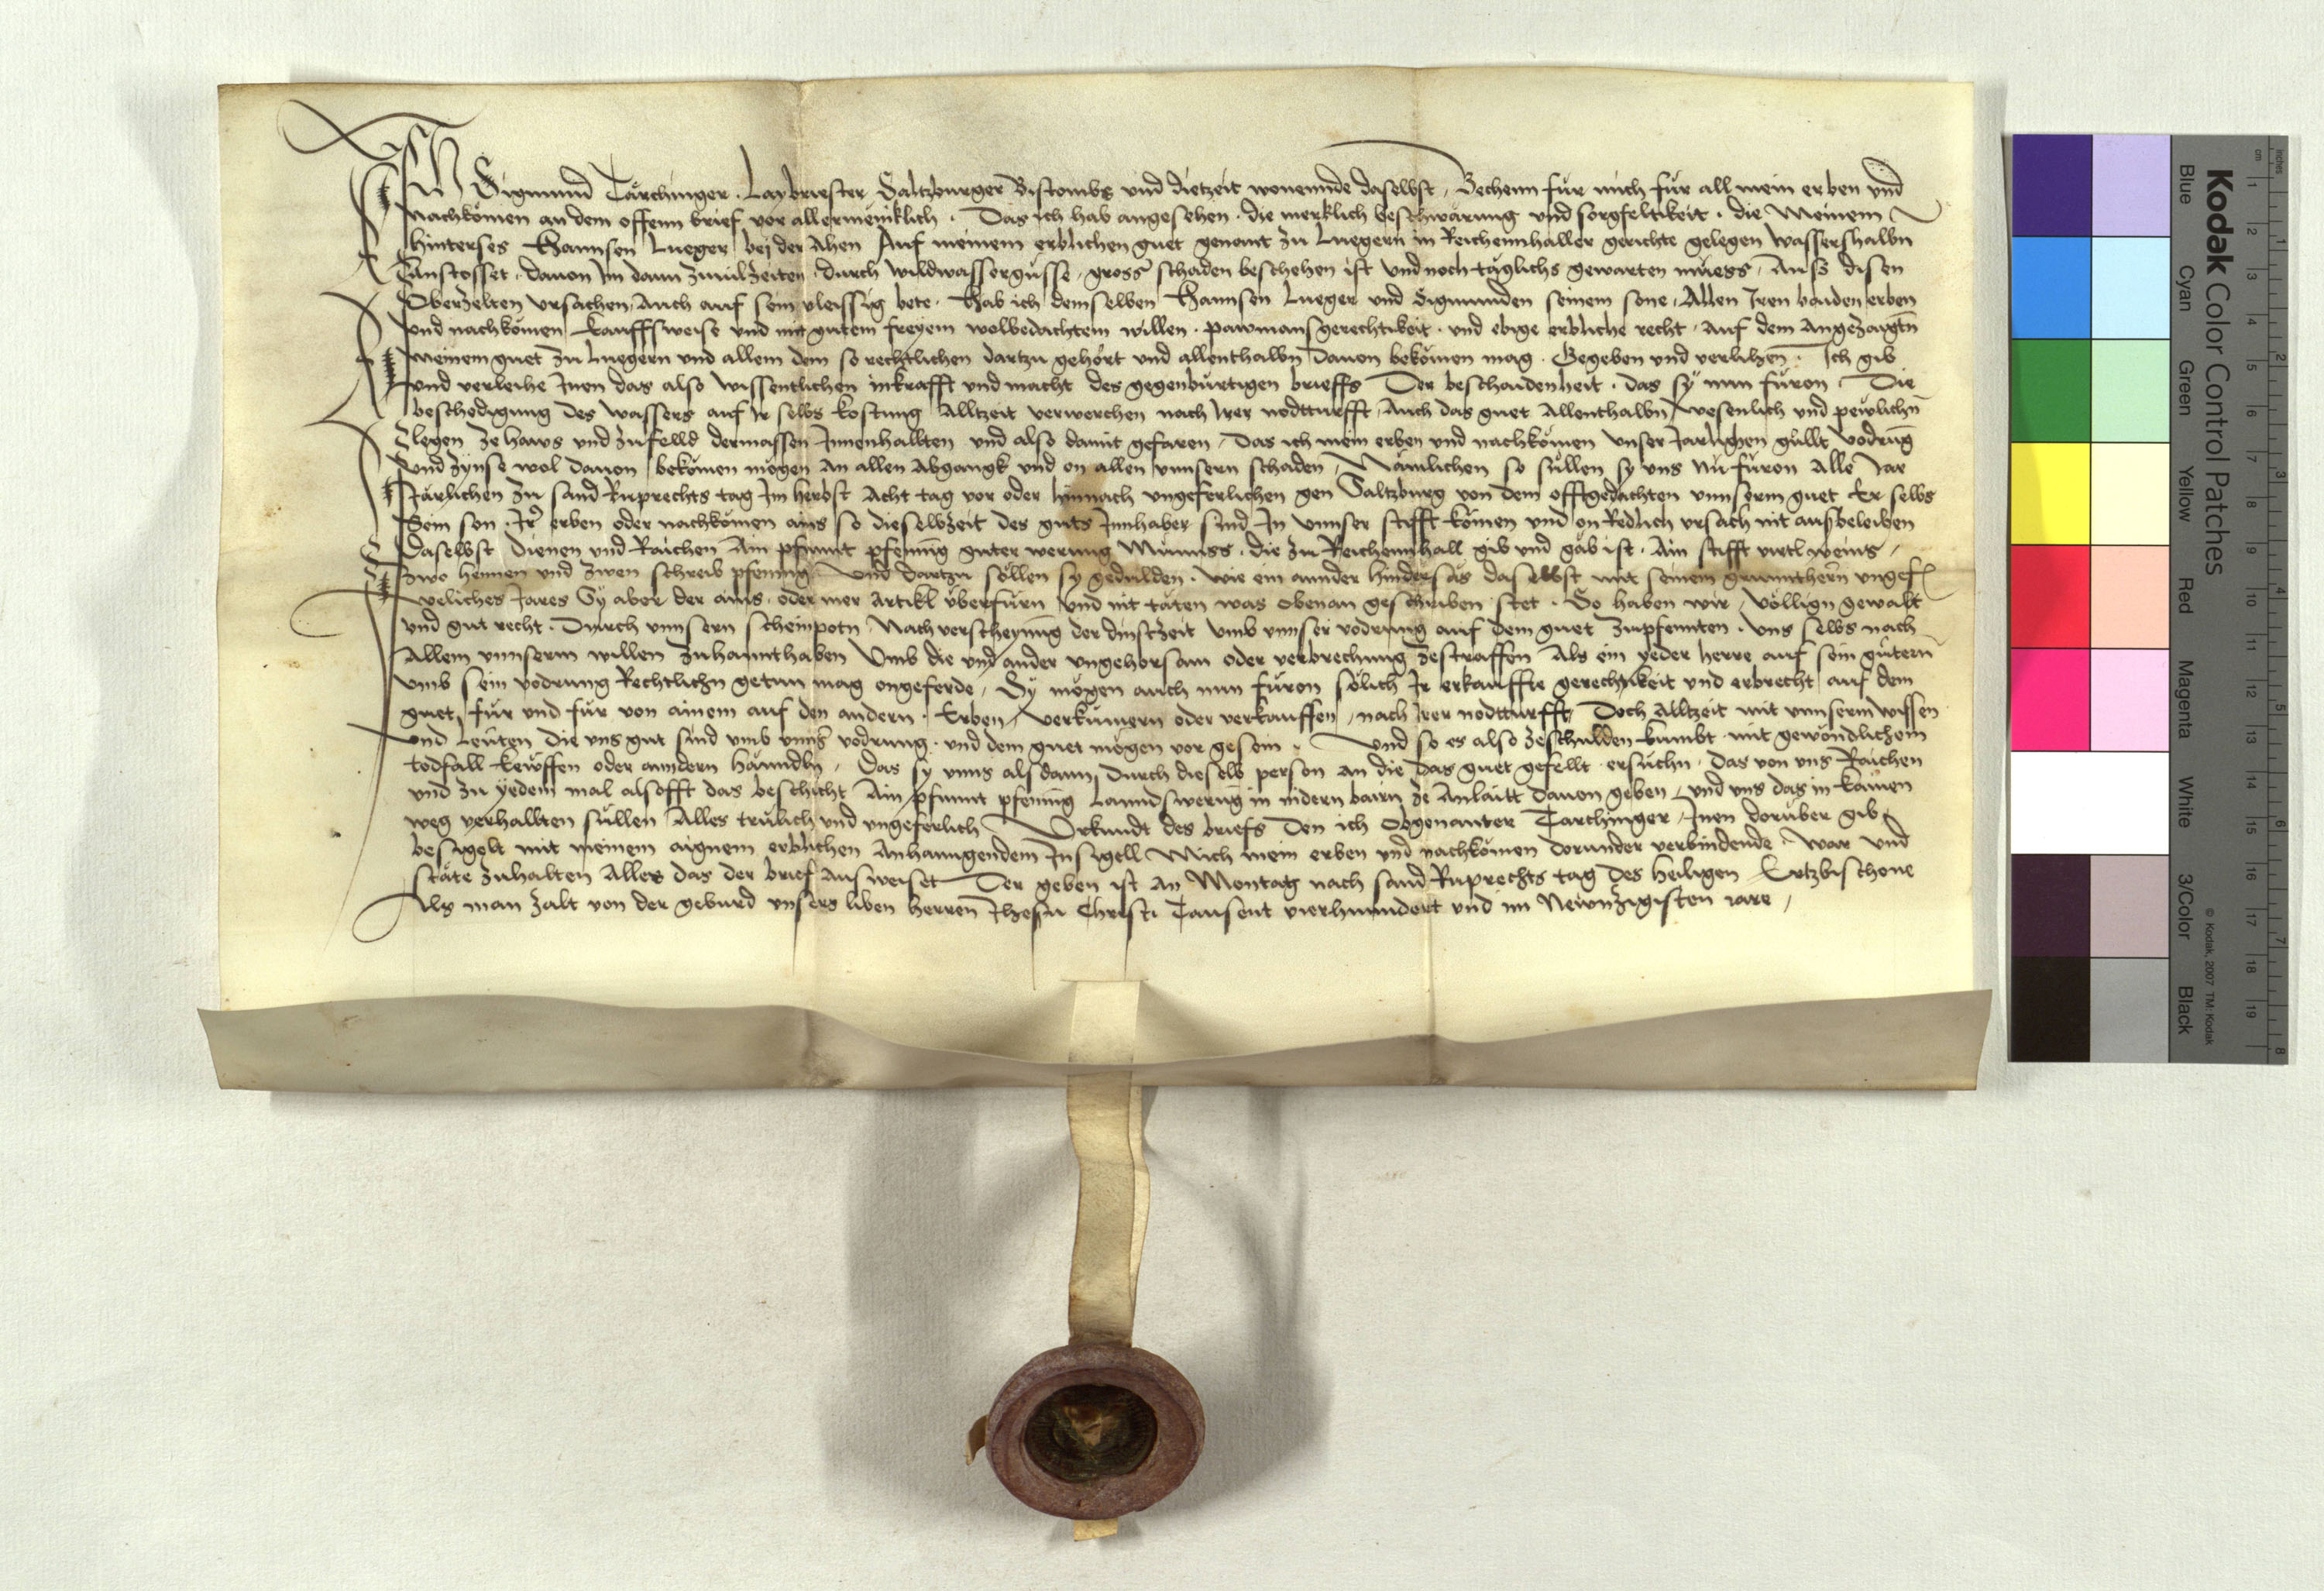 Ich Sigmund Tärchinger. Laybriester Saltzburger Bistombs und dietzeit wonennde daselbst, Bechenn für mich für all mein erben und
nachkömen an dem offenn brief vor allermeniklich. Das ich hab angesehen. die merklich beschwärung und sorgfeltikeit. die Meinem
hinterses Hannsen Lueger bej der Ahen Auf meinem erblichen guet genant zu Luegern in Reichennhaller gerichte gelegen wassershalbn
anstosset. dauon Im dann zuuilzeiten. durch wildwassergüsse, gross schaden beschehen ist Und noch täglichs gewarten muess, Ausz disen
Oberzelten ursachen, Auch auf sein vleissig bete. Hab ich demselben Hannsen Lueger und Sigmunden seinem sone, Allen Iren baiden erben
und nachkömen kauffsweise und mit gutem freyem wolbedachtem willen. pawmansgerechtikeit. und ebige erbliche recht, auf dem angezaigtn
meinem guet zu Luegern und allem dem so rechtlichen dartzu gehört und allenthalbn dauon bekömen mag. Gegeben und verlihen. Ich gib
und verleihe Inen das also wissentlichen inkrafft und macht des gegenbürtigen brieffs Der beschaidenheit. das sy nun füron. Die
beschedigung des wassers auf Ir selbs kostung Alltzeit verwerchen nach Irer nodtturfft, Auch das guet Allenthalbn, wesenlich und pewlichn
legen ze haws und zufelld dermassen Innenhallten und also damit gefaren, Das ich mein erben und nachkömen unser Jarlichen güllt vodrung
Und zynse wol dauon bekömen mögen an allen Abgangk und on allen unnsern schaden, Nämlichen so süllen sy uns nu füron Alle Jar
Järlichen zu sand Ruprechts tag Im herbst Acht tag vor oder hinnach ungeferlichen gen Saltzburg von dem offtgedachten unnserm guet Er selbs
Sein son. Ir erben oder nachkömen ains so dieselbzeit des guts Innhaber sind In unnser stifft kömen und on Redlich ursach nit ausbeleiben
daselbst dienen und Raichen Ain pfunnt pfennig guter werung Münnss. die zu Reichennhall gib und gäb ist. Ain stifft virtl weins,
zwo hennen und zwen schreib pfennig Und dartzu söllen sy gedulden. wie ein annder hindersäs daselbst mit seinem grunntherrn ungef
weliches Jares Sy aber der ains. oder mer Artikl überfurn Und nit täten was obenan geschriben stet. So haben wir, völlign gewalt
und gut recht. Durch unnsern scheinpotn Nach verscheynung der dinstzeit Umb unnser vodrung auf dem guet zupfennten. uns selbs nach
Allem unnserm willen zuhannthaben Umb die und ander ungehorsam oder verbrechung zestraffen Als ein yeder herre auf sein gütern
umb sein vodrung Rechtlichn getun mag ongeferde, Sy mögen auch nun füron sölich Ir erkauffte gerechtikeit und erbrecht auf dem
guet, für und für von ainem auf den andern. Erben, verkumern oder verkauffen, nach Irer nodtturfft, Doch Alltzeit mit unnserm wissen
und Leuten die uns gut sind umb unnser vodrung. und dem guet mögen vor gesein. Und so es also zeschulden kumbt mit gewondlichem
todfall kewffen oder anndern hänndln, Das sy unns alsdann, durch dieselb person an die das guet gefellt ersuchn. das von uns Raichen
und zu yedem mal alsofft das beschicht Ain pfunnt pfennig Lanndswerung in nidern bairn ze Anlaitt dauon geben, und uns das in kainen
weg verhallten süllen Alles trulich und ungeferlich Urkundt des briefs Den ich Obgenanter Tarchinger, Inen dorüber gib
besigelt mit meinem aignem erblichen Anhanngendem Insigell Mich mein erben und nachkömen dorunder verbindende. War und
stäte zuhalten Alles das der brief Ausweiset Der geben ist An Montag nach sand Ruprechts tag des heiligen Ertzbischoue
Als man zalt von der geburd unsers liben herren Jhesu Christi Tausent vierhunndert und im Newnzigisten iare,
Kodak Color Control Patches
© Kodak, 2007 TM: Kodak
Blue Cyan Green Yellow Red Magenta White 3/Color Black
cm 1 2 3 4 5 6 7 8 9 10 11 12 13 14 15 16 17 18 19
inches 1 2 3 4 5 6 7 8